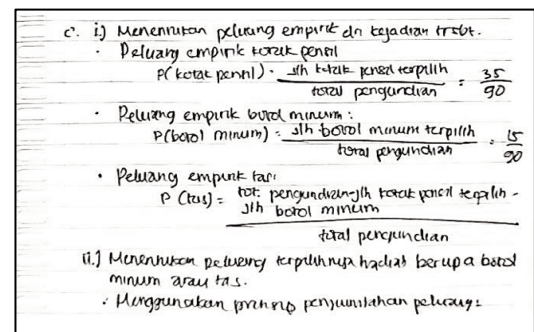 c. i) Menentukan peluang empirik dr kejadian trsbt.
· Peluang empirik kotak pensil
P(kotak pensil) = jlh kotak pensil terpilih / total pengundian = 35/90
· Peluang empirik botol minum :
P(botol minum) = jlh botol minum terpilih / total pengundian = 15/90
· Peluang empirik tas:
P (tas) = tot. pengundian - jlh kotak pensil terpilih -
jlh botol minum
total pengundian
ii.) Menentukan peluang terpilihnya hadiah berupa botol
minum atau tas.
· Menggunakan prinsip penjumlahan peluang: